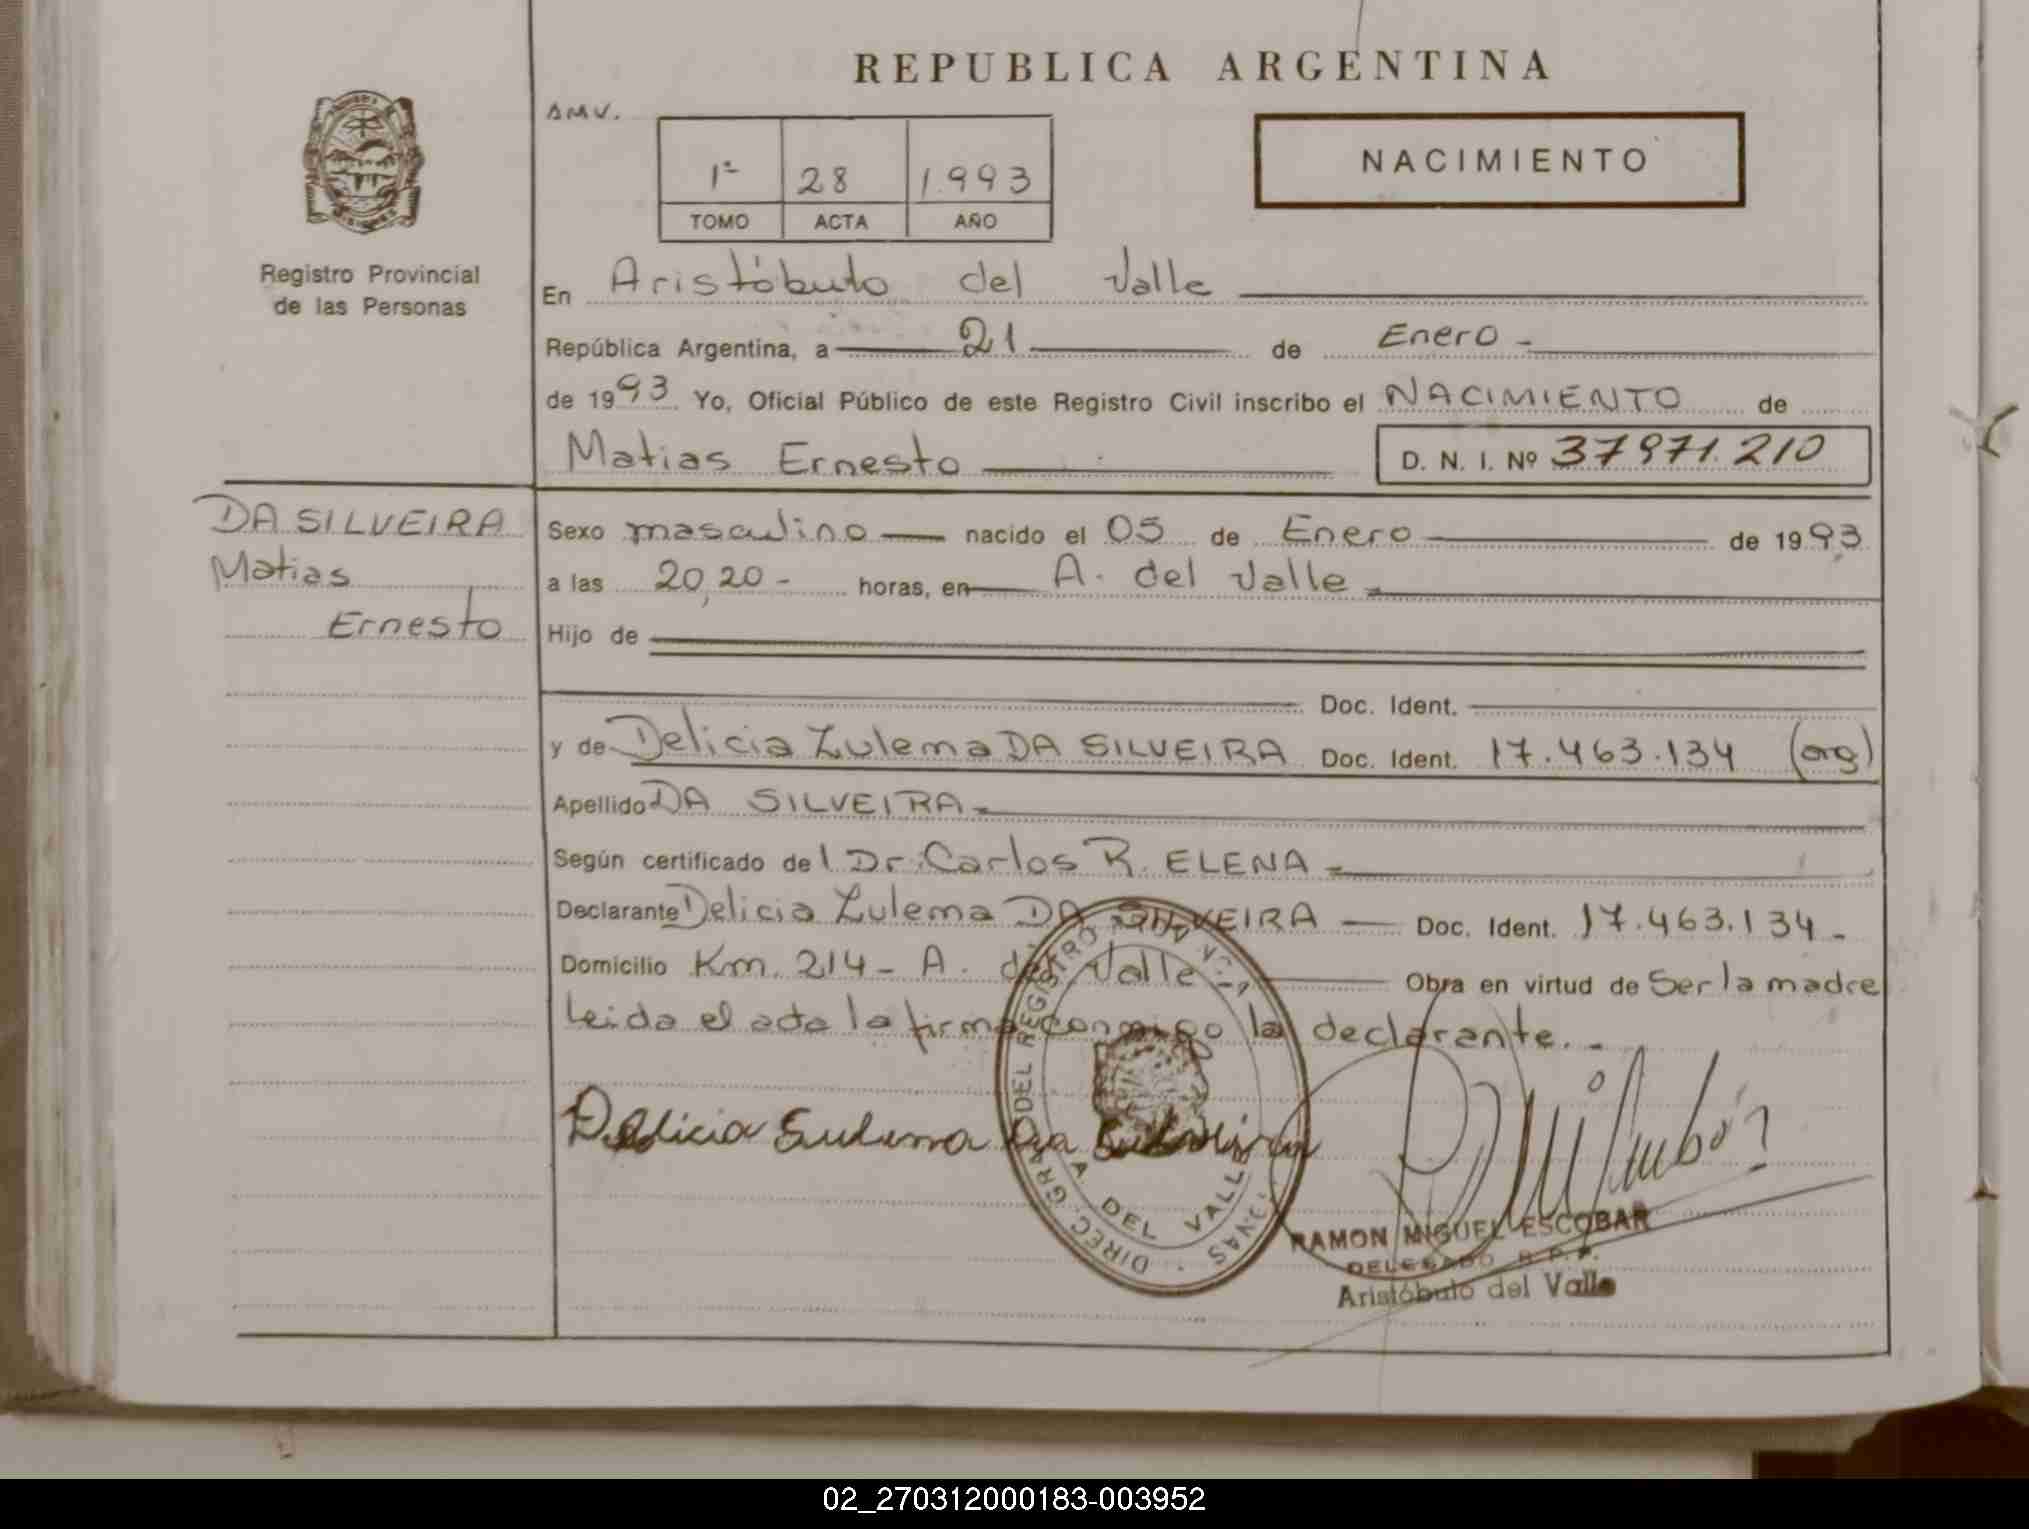 REPUBLICA ARGENTINA
AMV.
NACIMIENTO
1ª 28 1993
TOMO ACTA AÑO
Registro Provincial
de las Personas
En Aristóbulo del Valle
República Argentina, a 21 de Enero -
de 1993 Yo, Oficial Público de este Registro Civil inscribo el NACIMIENTO de
Matias Ernesto D. N. I. Nº 37971.210
DA SILVEIRA
Matias
Ernesto
Sexo masculino nacido el 05 de Enero de 1993
a las 20,20 - horas, en A. del Valle
Hijo de
Doc. Ident.
y de Delicia Zulema DA SILVEIRA Doc. Ident. 17.463.134 (arg)
Apellido DA SILVEIRA
Según certificado del Dr. Carlos R. ELENA
Declarante Delicia Zulema DA SILVEIRA Doc. Ident. 17.463.134 -
Domicilio Km. 214 - A. del Valle Obra en virtud de Ser la madre
Leida el acta la firma conmigo la declarante. -
Delicia Sulema Da Silveira
DIREC. GRAL. DEL REGISTRO
A DEL VALLE
RAMON MIGUEL ESCOBAR
DELEGADO R.P.P.
Aristóbulo del Valle
02_270312000183-003952